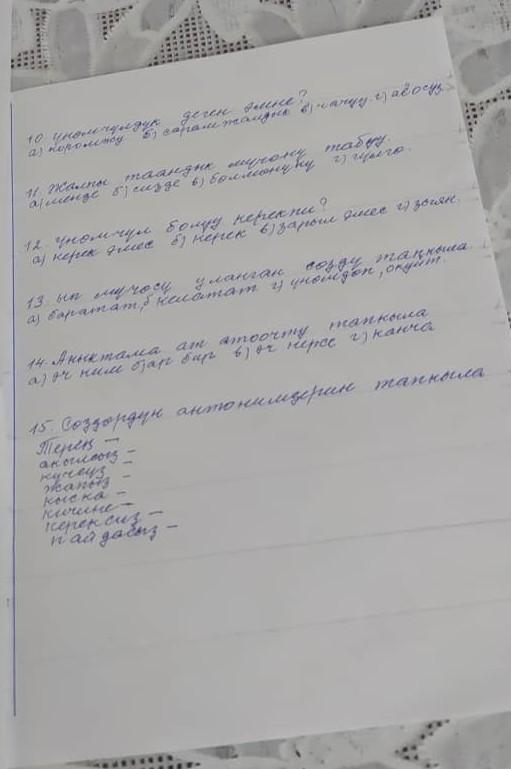 10. үномчулдук деген эмне?
а) коромжу б) сарамжалдык в) чачуу г) аёосуз
11. Жалпы таандык мүчөнү табуу.
а) менде б) сизде в) бөлмөнүкү г) гүлгө.
12. үнөмчүл болуу керекпи?
а) керек эмес б) керек в) зарыл эмес г) зыян.
13. ып мүчөсү уланган сөздү тапкыла
а) баратат, б келатат г) үнөмдөп, окуйт.
14. Аныктама ат атоочту тапкыла
а) эч ким б) ар бир в) эч нерсе г) канча
15. Сөздөрдүн антонимдерин тапкыла
Терең –
акылсыз –
күчсүз –
жапыз –
кыска –
кичине –
керексиз –
пайдасыз –